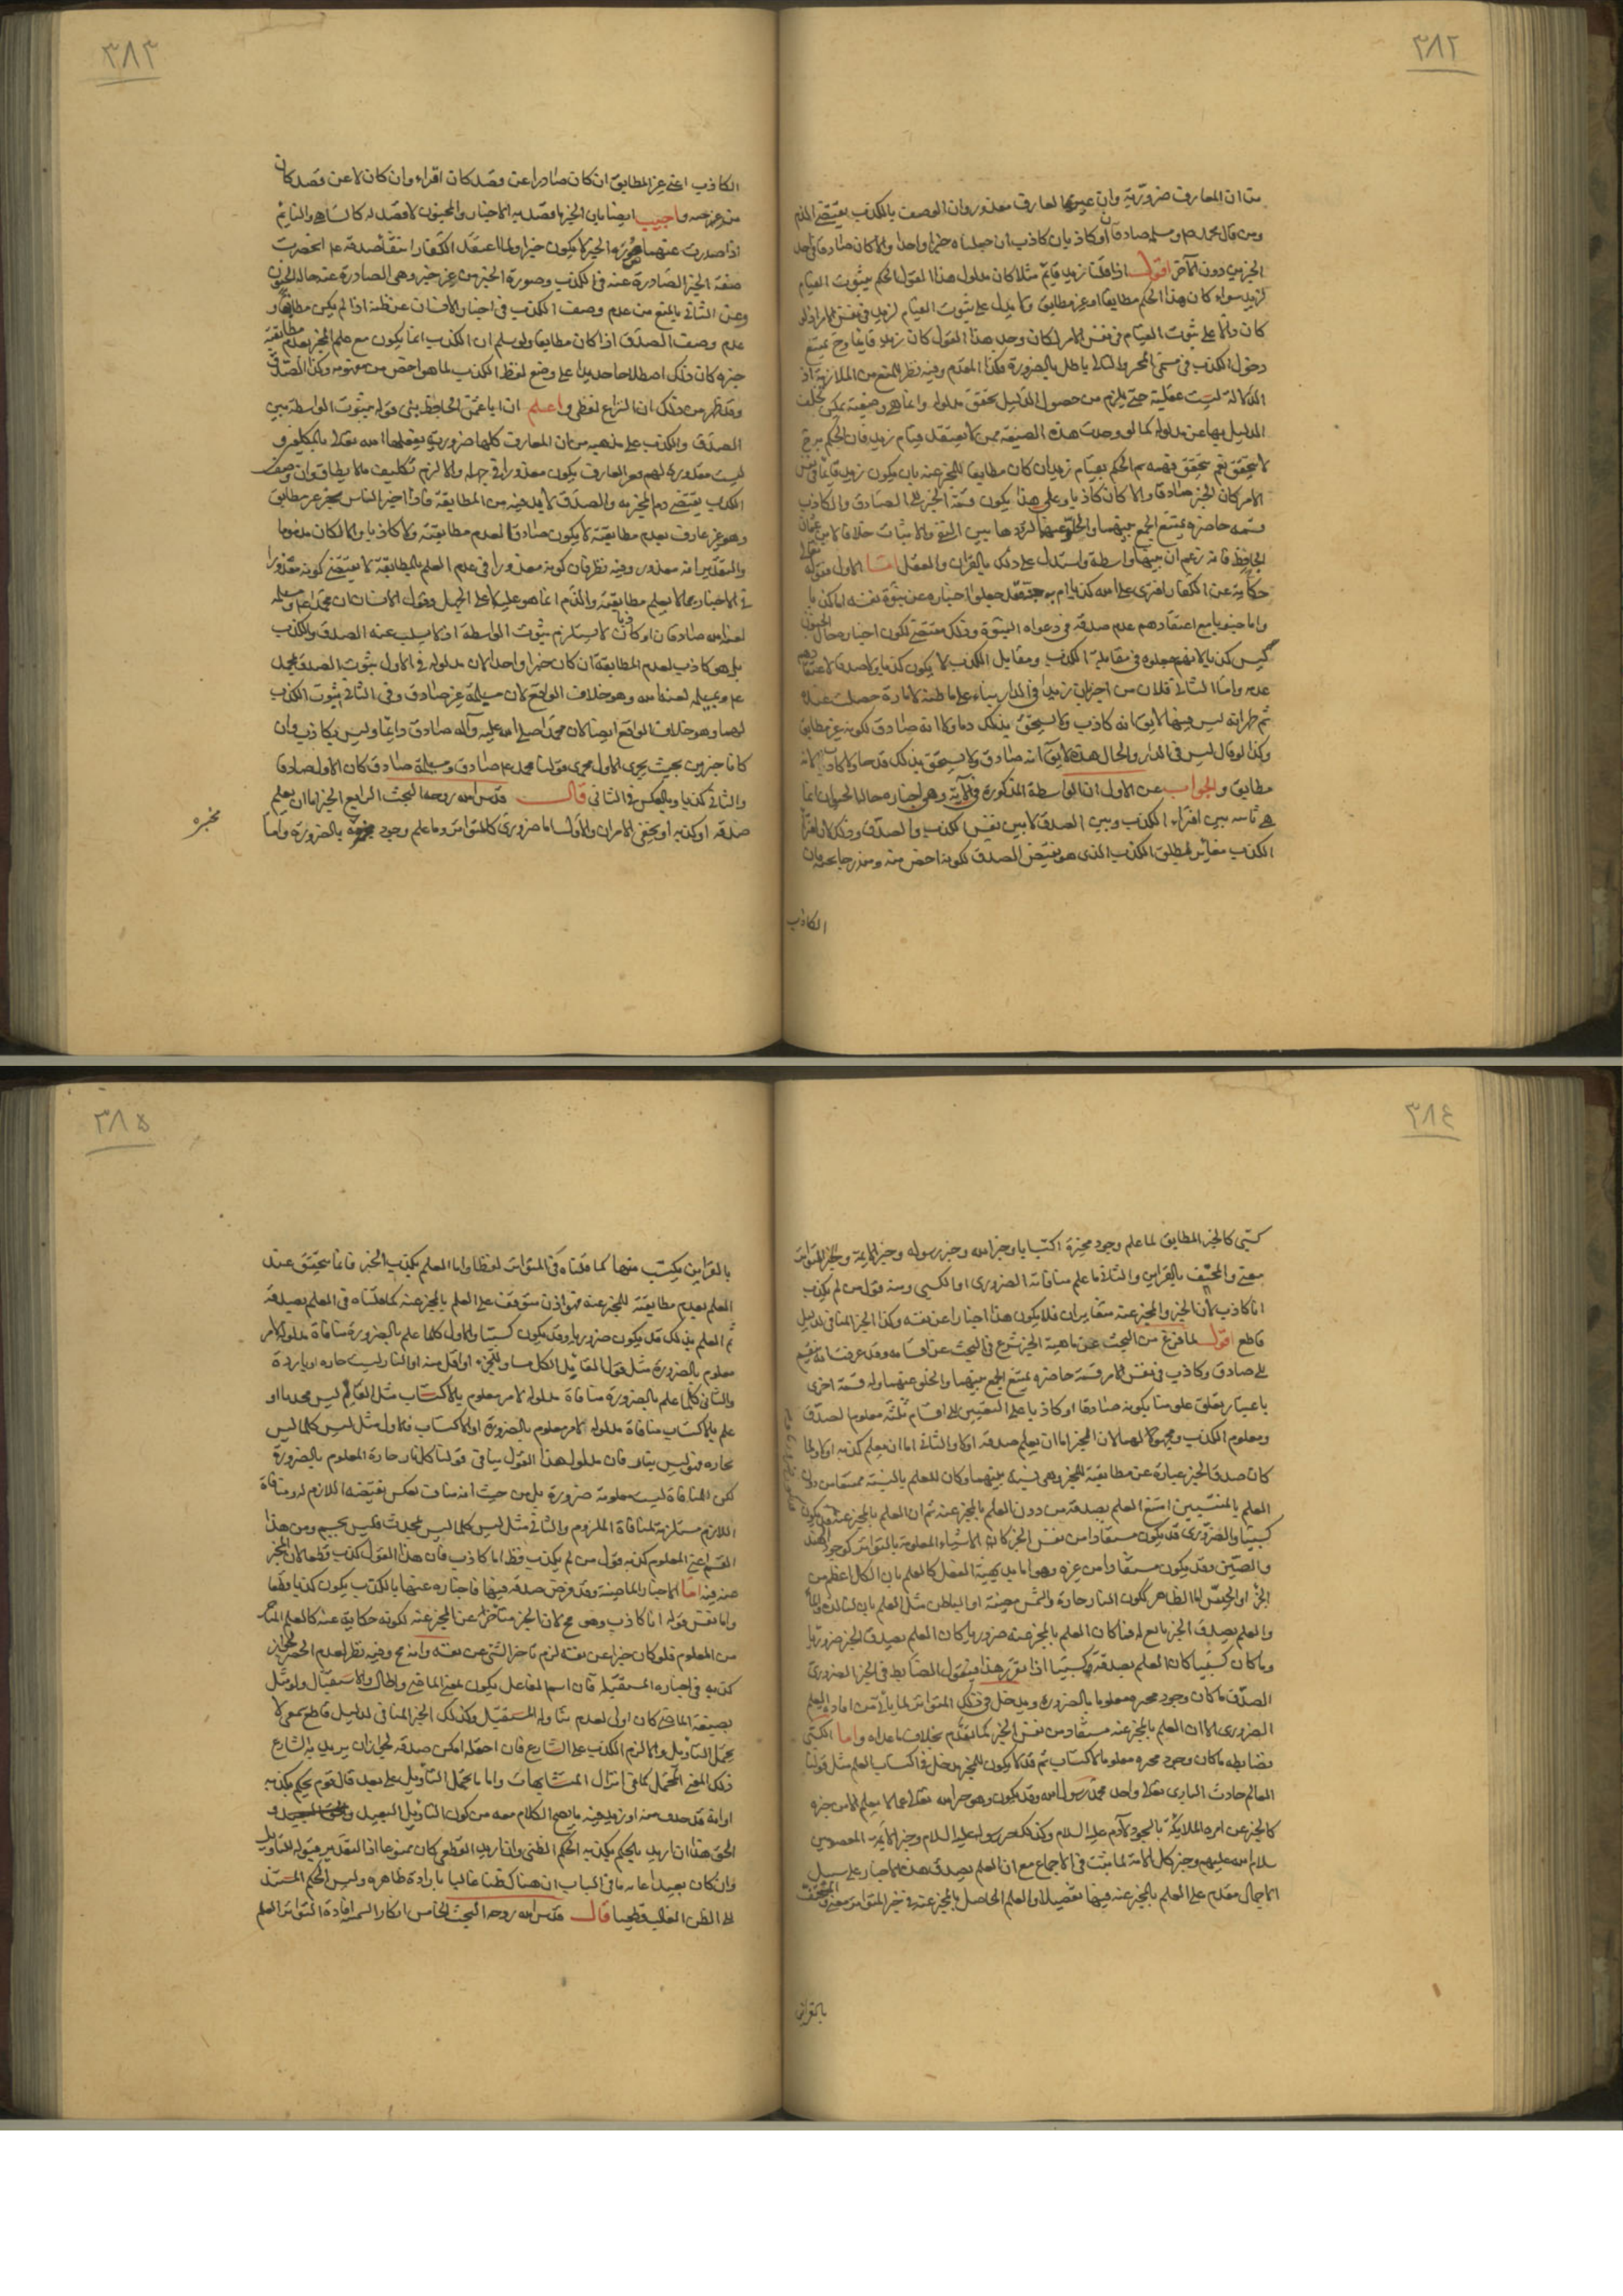 ٣٨٢
من ان المعارف ضرورية وان غير العارف معذور وان الوصف بالكذب يقتضى الذم
ومن قال محمد ص ومسيلمة صادقان او كاذبان كاذب ان جعلناه خبرا واحدا والا كان صادقا فى احد
الخبرين دون الآخر اقول اذا قلنا زيد قايم مثلا كان مدلول هذا القول الحكم بثبوت القيام
لزيد سواء كان هذا الحكم مطابقا او غير مطابق ولا يدل على ثبوت القيام لزيد فى نفس الامر اذ لو
كان دالا على ثبوت القيام فى نفس الامر لكان وجد هذا القول كان زيد قايما وح يمتنع
دخول الكذب فى مسمى الخبر والتالى باطل بالضرورة فكذا المقدم وفيه نظر للمنع من الملازمة اذ
الدلالة ليست عقلية حتى يلزم من حصول الدليل تحقق مدلوله وانما هى وضعية يمكن تخلف
الدليل بها عن مدلوله كما لو وجدت هذه الصيغة ممن لا يعتقد قيام زيد فان الحكم ح
لا يتحقق نعم يتحقق فهمه ثم الحكم بقيام زيد ان كان مطابقا للمخبر عنه بان يكون زيد قايما فى نفس
الامر كان الخبر صادقا والا كان كاذبا وعلى هذا يكون قسمة الخبر الى الصادق والكاذب
قسمة حاصرة يمتنع الجمع بينهما والخلو عنهما لترددها بين النفى والاثبات خلافا لابى عثمان
الجاحظ فانه زعم ان بينهما واسطة واستدل على ذلك بالقران والعقل اما الاول فقوله تعالى
حكاية عن الكفار افترى على الله كذبا ام به جنة فقد جعلوا اخباره عن نبوة نفسه اما كذبا
واما جنونا مع اعتقادهم عدم صدقه فى دعواه النبوة وذلك يقتضى كون اخباره حال الجنون
ليس كذبا لانهم جعلوه فى مقابلة الكذب ومقابل الكذب لا يكون كذبا ولا صدقا لاعتقادهم
عدمه واما الثانى فلان من اخبر ان زيدا فى الدار بناء على ما ظنه لامارة حصلت عنده
ثم ظهر انه ليس فيها لا يق انه كاذب ولا يستحق بذلك ذما ولا انه صادق لكونه غير مطابق
وكذا لو قال ليس فى الدار والحال هذه لا يق انه صادق ولا يستحق بذلك مدحا ولا كاذب لانه
مطابق والجواب عن الاول ان الواسطة المذكورة فى الاية وهى اخباره حال الجنون انما
هى ثابتة بين افتراء الكذب وبين الصدق لا بين نفس الكذب والصدق وذلك لان افتراء
الكذب مغاير لمطلق الكذب الذى هو نقيض الصدق لكونه اخص منه ومندرجا تحته فان
الكاذب
٣٨٣
الكاذب اعنى غير المطابق ان كان صادرا عن قصد كان افتراء وان كان لا عن قصد كان
من غير جنسه واجيب ايضا بان الخبر ما قصد به الاخبار والمجنون لا قصد له كالساهى والنايم
اذا صدرت عنهما صورة الخبر لا يكون خبرا ولما اعتقد الكفار انتفاء صدقه عم انحصرت
صفة الخبر الصادرة عنه فى الكذب وصورة الخبر من غير خبر وهى الصادرة عنه حالة الجنون
وعن الثانى بالمنع من عدم وصف الكذب فى اخبار الانسان عن ظنه اذا لم يكن مطابقا و
عدم وصف الصدق اذا كان مطابقا ولو سلم ان الكذب انما يكون مع علم المخبر بعدم مطابقة
خبره كان ذلك اصطلاحا جديدا على وضع لفظ الكذب لما هو اخص من مفهومه وكذا الصدق
وقد ظهر من ذلك ان النزاع لفظى واعلم ان ابا عثمان الجاحظ بنى قوله بثبوت الواسطة بين
الصدق والكذب على مذهبه من ان المعارف كلها ضرورية يفعلها الله تعالى بالمكلفين و
ليست مقدورة لهم فغير العارف يكون معذورا فى جهله والا لزم تكليف ما لا يطاق وان وصف
الكذب يقتضى ذم المخبر به والصدق لا بد فيه من المطابقة فاذا اخبر الناس بخبر غير مطابق
وهو غير عارف بعدم مطابقته لا يكون صادقا لعدم مطابقته ولا كاذبا والا لكان مذموما
والتقدير انه معذور وفيه نظر فان كونه معذورا فى عدم العلم بالمطابقة لا يقتضى كونه معذورا
فى الاخبار بما لا يعلم مطابقته والذم انما هو عليه لا على الجهل وقول الانسان ان محمدا عم ومسيلمة
لعنه الله صادقان او كاذبان لا يستلزم ثبوت الواسطة اذ لا يسلب عنه الصدق والكذب
بل هو كاذب لعدم المطابقة ان كان خبرا واحدا لان مدلوله فى الاول ثبوت الصدق لمحمد
عم ومسيلمة لعنه الله وهو خلاف الواقع لان مسيلمة غير صادق وفى الثانى ثبوت الكذب
لهما وهو خلاف الواقع ايضا لان محمدا صلى الله عليه وآله صادق دايما وليس بكاذب وان
كانا خبرين بحيث يجرى الاول مجرى قولنا محمد عم صادق ومسيلمة صادق كان الاول صادقا
والثانى كذبا وبالعكس فى الثانى قال قدس الله روحه البحث الرابع الخبر اما ان يعلم
صدقه او كذبه او يخفى الامران والاول اما ضرورى كالمتواتر وما علم وجود مخبره بالضرورة واما
مخبره
٣٨٤
كسبى كالخبر المطابق لما علم وجود مخبره اكتسابا وخبر الله وخبر رسوله وخبر الايمة وخبر المتواتر
معنى والمحتف بالقراين والثانى ما علم منافاته الضرورى او الكسبى ومنه قول من لم يكذب
انا كاذب لان الخبر والمخبر عنه متغايران فلا يكون هذا اخبارا عن نفسه وكذا الخبر المنافى لدليل
قاطع اقول لما فرغ من البحث عن ماهية الخبر شرع فى البحث عن اقسامه وقد عرفت انه ينقسم
الى صادق وكاذب فى نفس الامر قسمة حاصرة يمتنع الجمع بينهما والخلو عنهما وله قسمة اخرى
باعتبار تعلق علمنا بكونه صادقا او كاذبا على التعيين الى اقسام ثلثة معلوم الصدق
ومعلوم الكذب ومجهولا لهما لان الخبر اما ان يعلم صدقه او لا والثانى اما ان يعلم كذبه او لا ولما
كان صدق الخبر عبارة عن مطابقته للمخبر وهى نسبة بينهما وكان العلم بالنسبة مستفاد من دون
العلم بالمنتسبين امتنع العلم بصدقه من دون العلم بالمخبر عنه ثم ان العلم بالمخبر عنه قد يكون
كسبيا والضرورى قد يكون مستفادا من نفس الخبر كالاشياء المعلومة بالتواتر كوجود الهند
والصين وقد يكون مستفادا من غيره وهو اما بديهية العقل كالعلم بان الكل اعظم من
الجزء او الحس اما الظاهر ككون النار حارة والشمس مضيئة او الباطن مثل العلم بان لنا لذة والما
والعلم بصدق الخبر تابع له فما كان العلم بالمخبر عنه ضروريا كان العلم بصدق الخبر ضروريا
وما كان كسبيا كان العلم بصدقه كسبيا اذا تقرر هذا فنقول الضابط فى الخبر الضرورى
الصدق ما كان وجود مخبره معلوما بالضرورة ويدخل فى ذلك المتواتر لما ياتى من افادته العلم
الضرورى الا ان العلم بالمخبر عنه مستفاد من نفس الخبر كما تقدم بخلاف ما عداه واما الكسبى
فضابطه ما كان وجود مخبره معلوما بالاكتساب ثم قد لا يكون للخبر مدخل فى اكتساب العلم مثل قولنا
العالم حادث البارى تعالى واحد محمد رسول الله وقد يكون وهو خبر الله تعالى عما لا يعلم الا من خبره
كالخبر عن امره الملايكة بالسجود لآدم عليه السلام وكذلك خبر رسوله عليه السلام وخبر الايمة المعصومين
سلام الله عليهم وخبر كل الامة لما يثبت فى الاجماع مع ان العلم بصدق هذه الاخبار على سبيل
الاجمال مقدم على العلم بالمخبر عنه فيها تفصيلا والعلم الحاصل بالمخبر عنه فى خبر المتواتر معنى والمحتف
بالقراين
٣٨٥
بالقراين مكتسب منها كما قلناه فى المتواتر لفظا واما العلم بكذب الخبر فانما يتحقق عند
العلم بعدم مطابقته للمخبر عنه فهو اذن متوقف على العلم بالمخبر عنه كما قلناه فى العلم بصدقه
ثم العلم بذلك قد يكون ضروريا وقد يكون كسبيا والاول كلما علم بالضرورة منافاة مدلوله لامر
معلوم بالضرورة مثل قول القايل الكل مساو للجزء او اقل منه او النار ليست حارة او باردة
والثانى كلما علم بالضرورة منافاة مدلوله لامر معلوم بالاكتساب مثل العالم ليس محدثا او
علم بالاكتساب منافاة مدلوله لامر معلوم بالضرورة او الاكتساب فالاول مثل ليس كلما ليس
بحاره فهو ليس بنار فان مدلول هذا القول ينافى قولنا كل نار حارة المعلوم بالضرورة
لكن المنافاة ليست معلومة ضرورة بل من حيث انه مناف لعكس نقيضه اللازم له ومنافاة
اللازم مستلزمة لمنافاة الملزوم والثانى مثل ليس كلما ليس بمحدث فليس بجسم ومن هذا
القسم اعنى المعلوم كذبه قول من لم يكذب قط انا كاذب فان هذا القول كذب قطعا لان المخبر
عنه فيه اما الاخبار الماضية وقد فرض صدقه فيها فاخباره عنها بالكذب يكون كذبا قطعا
واما نفس قوله انا كاذب وهو مح لان الخبر متاخر عن المخبر عنه لكونه حكاية عنه كالعلم المتاخر
من المعلوم فلو كان خبرا عن نفسه لزم تاخر الشئ عن نفسه وانه مح وفيه نظر لعدم الحصر لجواز
كذبه فى اخباره المستقبلة فان اسم الفاعل يكون بمعنى الماضى والحال والاستقبال ولو مثل
بصيغة الماضى كان اولى لعدم تناوله المستقبل وكذلك الخبر المنافى لدليل قاطع سمعى لا
يحتمل التاويل والا لزم الكذب على الشارع فان احتمله امكن صدقه لجواز ان يريد به الشارع
ذلك المعنى المحتمل كما فى انزال المتشابهات واما ما يحتمل التاويل على بعد قال قوم يحكم بكذبه
او انه قد حذف منه او زيد فيه ما يصح الكلام معه من كون التاويل البعيد و
الحق هذا ان اريد بالحكم بكذبه الحكم الظنى وان اريد القطعى كان ممنوعا اذ التقدير قبوله للتاويل
وان كان بعيدا غايه ما فى الباب ان هناك ظنا غالبا بارادة ظاهره وليس الحكم المستند
الى الظن الغالب قطعيا قال قدس الله روحه البحث الخامس انكار السمنية افادة التواتر العلم